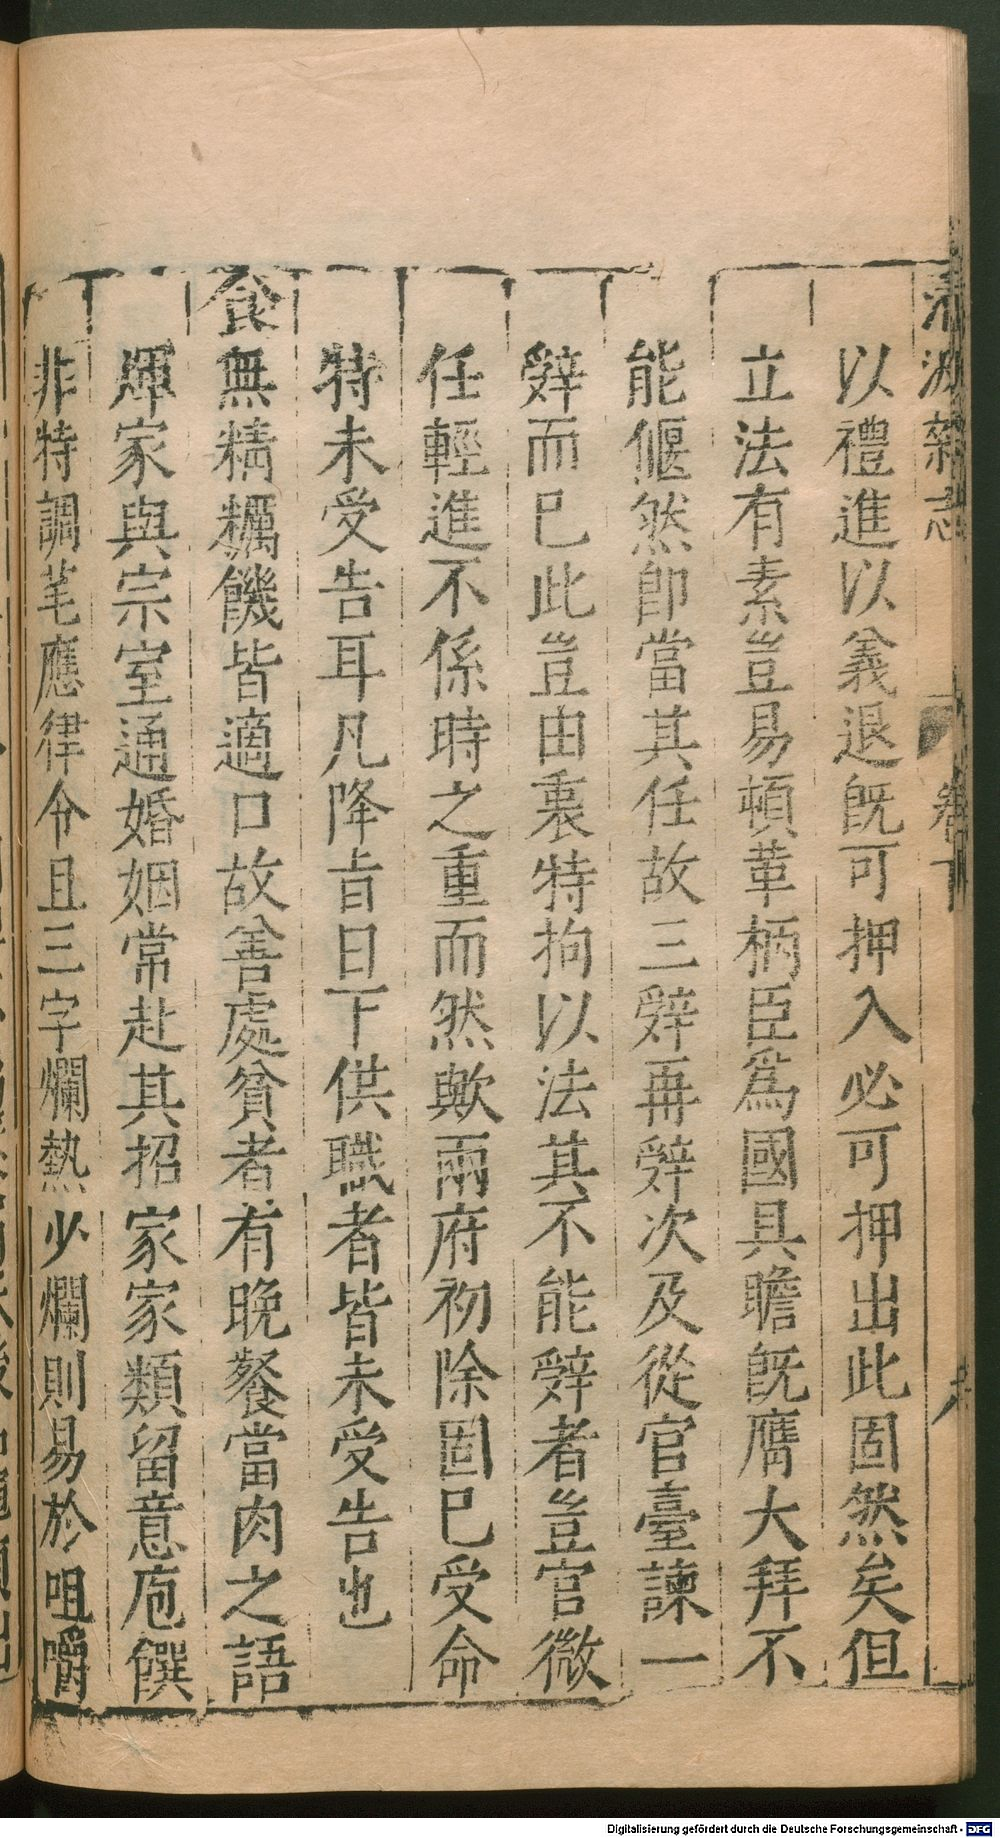 清波雜志 卷下
以禮進以義退旣可押入必可押出此固然矣但
立法有素豈易頓革柄臣爲國具瞻旣膺大拜不
能偃然卽當其任故三辤再辤次及從官臺諫一
辤而已此豈由衷特拘以法其不能辤者豈官微
任輕進不係時之重而然歟兩府初除固已受命
特未受告耳凡降㫖日下供職者皆未受告也
食無精糲饑皆適口故善處貧者有晚餐當肉之語
煇家與宗室通婚姻常赴其招家家類留意庖饌
非特調芼應律令且三字爛熱少爛則易於咀嚼
Digitalisierung gefördert durch die Deutsche Forschungsgemeinschaft - DFG